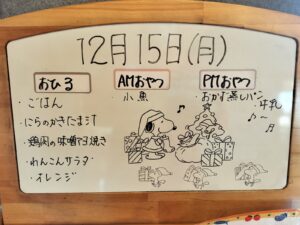 12月15日(月)
おひる
・ごはん
・にらのかきたま汁
・鶏肉の味噌マヨ焼き
・れんこんサラダ
・オレンジ
AMおやつ
・小魚
PMおやつ
・おかず蒸しパン
・牛乳